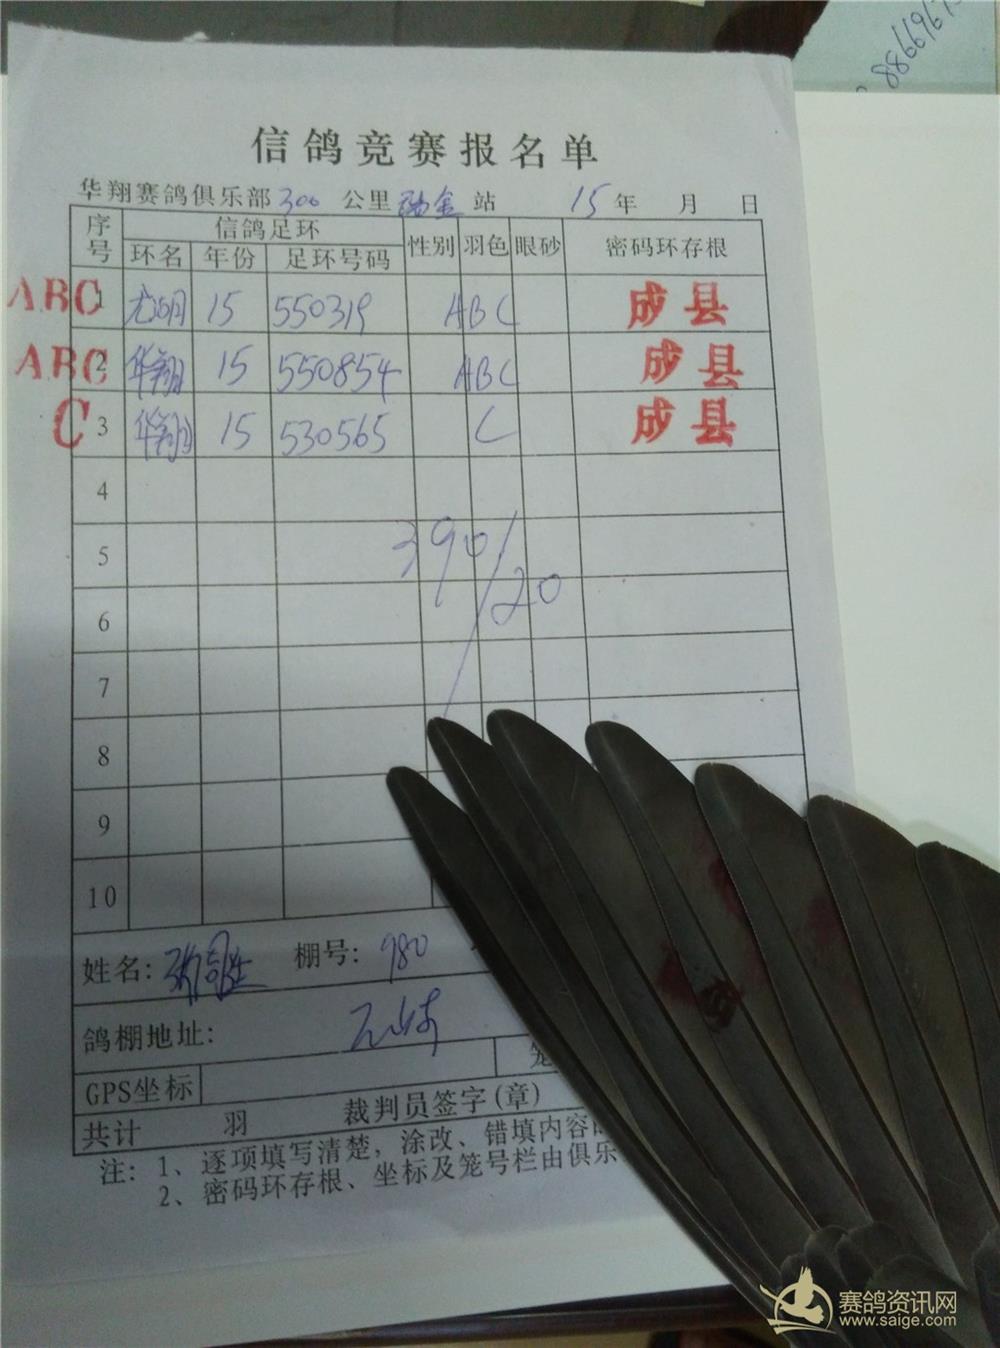 信鸽竞赛报名单
华翔赛鸽俱乐部 300 公里 站 15 年 月 日
序号 信鸽足环 性别 羽色 眼砂 密码环存根
环名 年份 足环号码
ABC 1 15 550319 ABC 成县
ABC 2 华翔 15 550854 ABC 成县
C 3 华翔 15 530565 C 成县
4
5
390/20
6
7
8
9
10
姓名: 棚号: 980
鸽棚地址:
GPS坐标 笼
共计 羽 裁判员签字(章)
注: 1、逐项填写清楚，涂改、错填内容
2、密码环存根、坐标及笼号栏由俱乐
赛鸽资讯网
www.saige.com